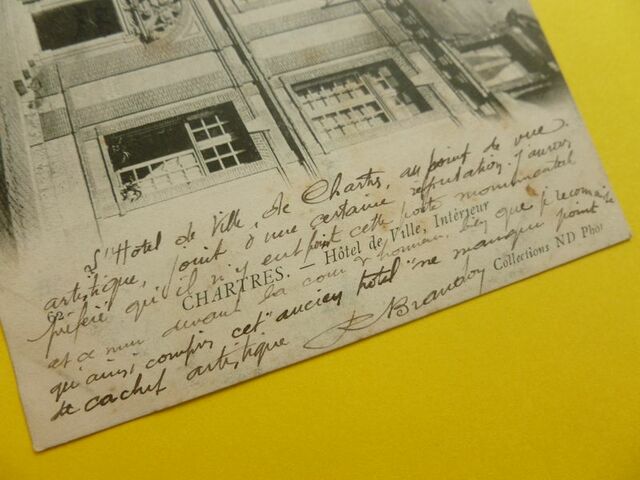 L'Hôtel de Ville, de Chartres, au point de vue
artistique, jouit d'une certaine réputation. J'aurais
préféré qu'il n'y eut point cette porte monumentale
et ce mur devant la cour d'honneur, bien que je reconnaisse
qu'ainsi compris cet "ancien hôtel" ne manque point
de cachet artistique
Brandoy
62.
CHARTRES. — Hôtel de Ville, Intérieur
Collections ND Phot